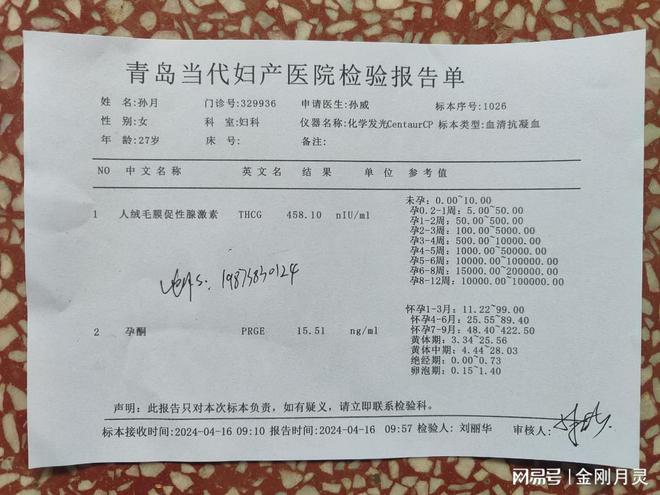 青岛当代妇产医院检验报告单
姓 名:孙月 门诊号:329936 申请医生:孙威 标本序号:1026
性 别:女 科 室:妇科 仪器名称:化学发光CentaurCP 标本类型:血清抗凝血
年 龄:27岁 床 号: 备注:
NO 中文名称 英文名 结 果 单 位 参考值
1 人绒毛膜促性腺激素 THCG 458.10 nIU/ml
未孕: 0.00~10.00
孕0.2-1周: 5.00~50.00
孕1-2周: 50.00~500.00
孕2-3周: 100.00~5000.00
孕3-4周: 500.00~10000.00
孕4-5周: 1000.00~50000.00
孕5-6周: 10000.00~100000.00
孕6-8周: 15000.00~200000.00
孕8-12周: 10000.00~100000.00
19875830124
2 孕酮 PRGE 15.51 ng/ml
怀孕1-3月: 11.22~99.00
怀孕4-6月: 25.55~89.40
怀孕7-9月: 48.40~422.50
黄体期: 3.34~25.56
黄体中期: 4.44~28.03
绝经期: 0.00~0.73
卵泡期: 0.15~1.40
声明: 此报告只对本次标本负责, 如有疑义, 请立即联系检验科。
标本接收时间:2024-04-16 09:10 报告时间:2024-04-16 09:57 检验人: 刘丽华 审核人:
网易号 | 金刚月灵